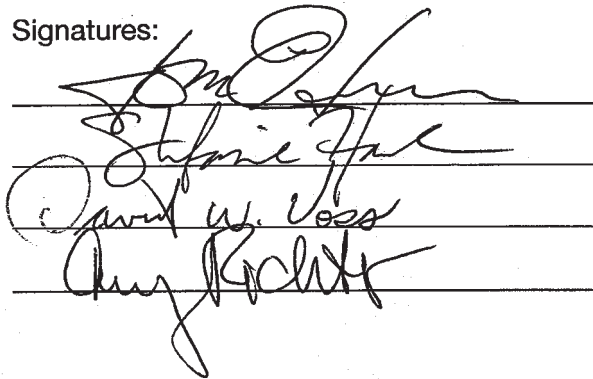 Signatures:
Stefanie
David W. Voss
Amy Richter